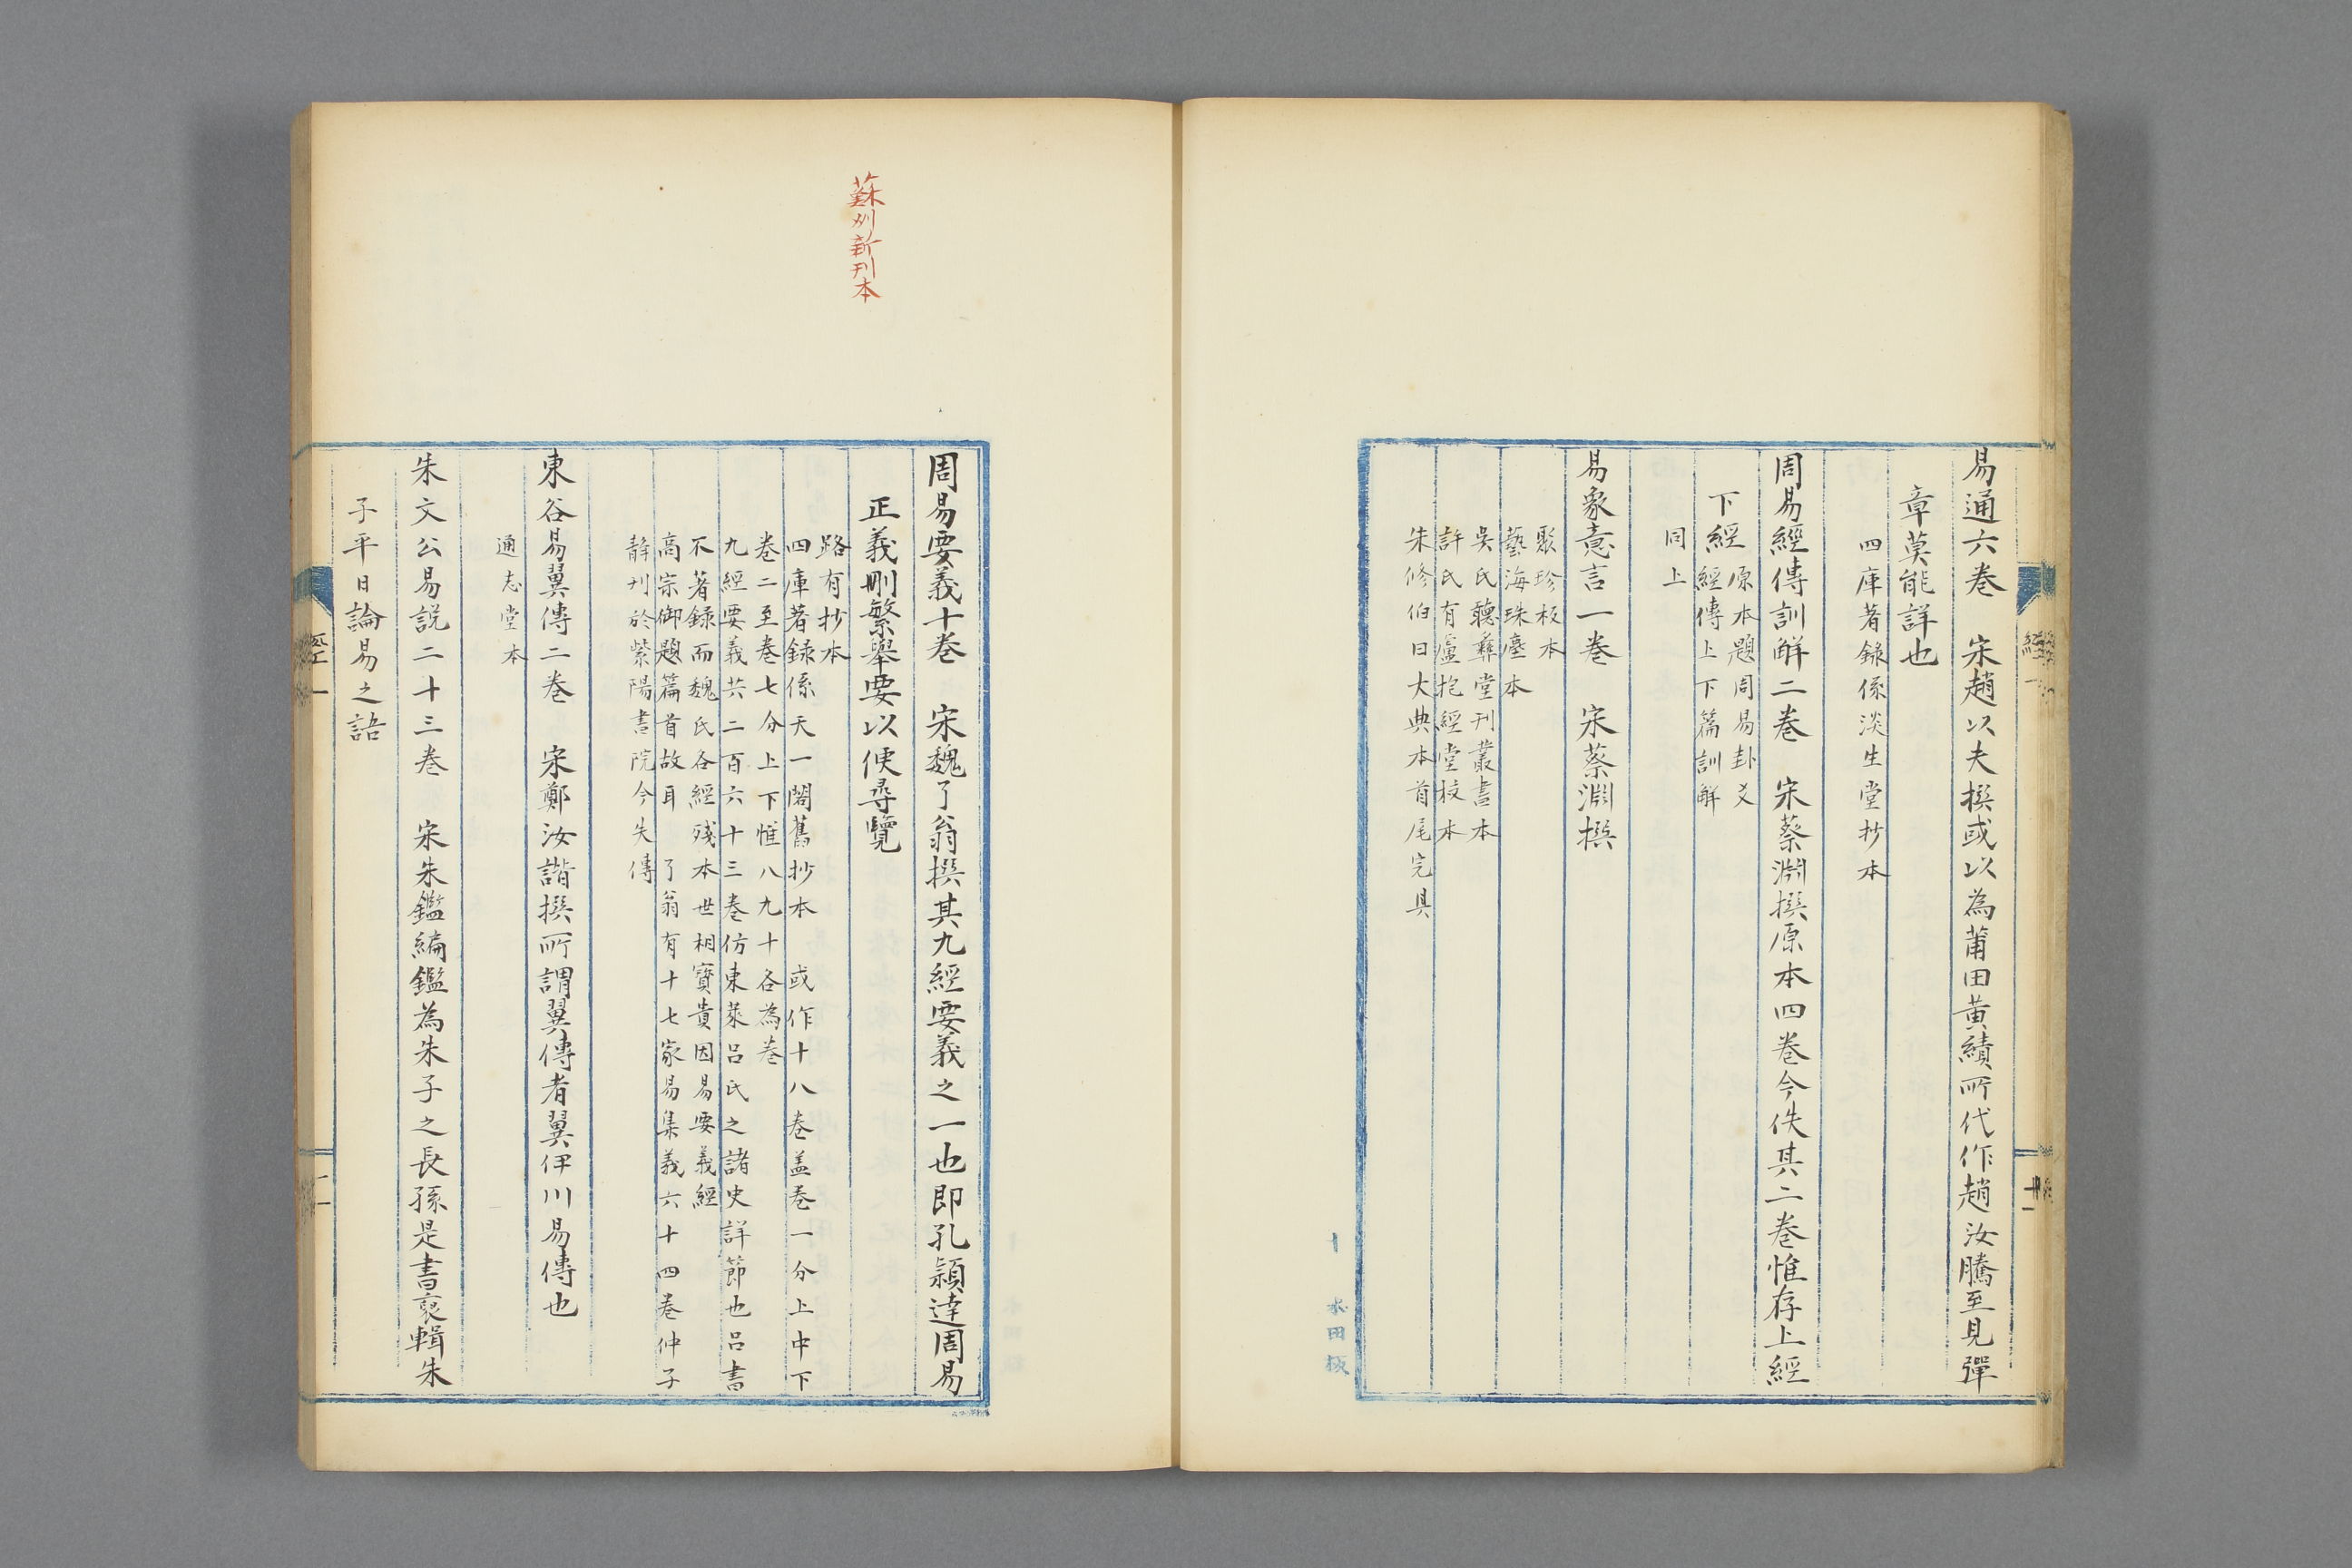 易通六卷　宋趙以夫撰或以為莆田黄績所代作趙汝騰至見彈
章莫能詳也
四庫著錄係淡生堂抄本
周易經傳訓解二卷　宋蔡淵撰原本四卷今佚其二卷惟存上經
下經
原本題周易卦爻
經傳上下篇訓解
同上
易象意言一卷　宋蔡淵撰
聚珍板本
藝海珠塵本
吳氏聽彝堂刊叢書本
許氏有盧抱經堂校本
朱修伯曰大典本首尾完具
十
永田板
蘇州新刊本
周易要義十卷　宋魏了翁撰其九經要義之一也即孔穎達周易
正義刪繁舉要以便尋覽
路有抄本
四庫著錄係天一閣舊抄本　或作十八卷盖卷一分上中下
卷二至卷七分上下惟八九十各為卷
九經要義共二百六十三卷仿東萊呂氏之諸史詳節也呂書
不著錄而魏氏各經殘本世相寶貴因易要義經
高宗御題篇首故耳　了翁有十七家易集義六十四卷仲子
靜刊於紫陽書院今失傳
東谷易翼傳二卷　宋鄭汝諧撰所謂翼傳者翼伊川易傳也
通志堂本
朱文公易説二十三卷　宋朱鑑編鑑為朱子之長孫是書裒輯朱
子平日論易之語
經一